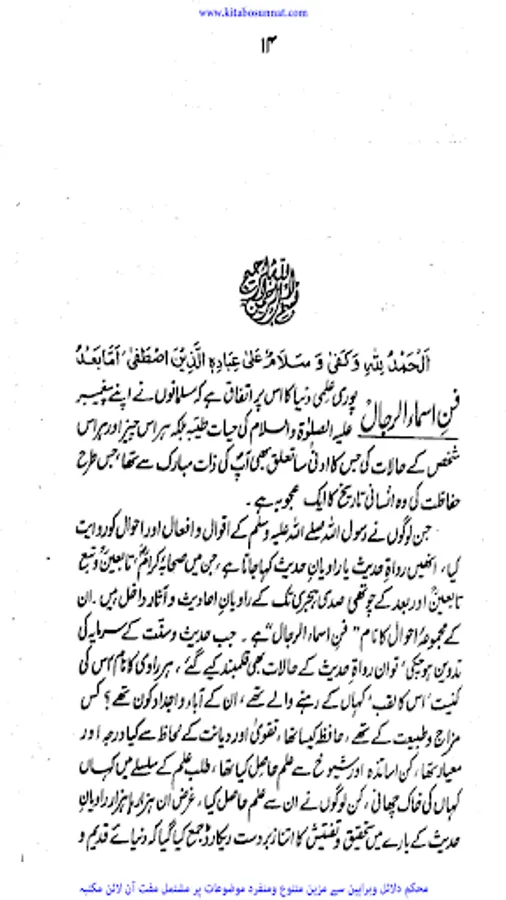 www.kitabosunnat.com
۱۴
بسم اللہ الرحمن الرحیم
اَلْحَمْدُ لِلّٰہِ وَکَفٰی وَ سَلَامٌ عَلٰی عِبَادِہِ الَّذِیْنَ اصْطَفٰی، اَمَّا بَعْدُ
فنِ اسماء الرجال پوری علمی دنیا کا اس پر اتفاق ہے کہ مسلمانوں نے اپنے پیغمبر
علیہ الصلوٰۃ والسلام کی حیات طیبہ بلکہ ہر اس چیز اور ہر اس
شخص کے حالات کی جس کا ادنیٰ سا تعلق بھی آپؐ کی ذات مبارک سے تھا، جس طرح
حفاظت کی وہ انسانی تاریخ کا ایک عجوبہ ہے۔
جن لوگوں نے رسول اللہ صلے اللہ علیہ وسلم کے اقوال و افعال اور احوال کو روایت
کیا، انھیں رواۃِ حدیث یا راویانِ حدیث کہا جاتا ہے، جن میں صحابۂ کرامؓ، تابعینؒ و تبع
تابعینؒ اور بعد کے چوتھی صدی ہجری تک کے راویانِ احادیث و آثار داخل ہیں۔ ان
کے مجموعۂ احوال کا نام "فن اسماء الرجال" ہے۔ جب حدیث و سنّت کے سرمایہ کی
تدوین ہو چکی، تو ان رواۃِ حدیث کے حالات بھی قلمبند کیے گئے، ہر راوی کا نام، اس کی
کنیت، اس کا لقب، کہاں کے رہنے والے تھے، ان کے آباء و اجداد کون تھے؟ کس
مزاج و طبیعت کے تھے، حافظہ کیسا تھا، تقویٰ اور دیانت کے لحاظ سے کیا درجہ اور
معیار تھا، کن اساتذہ اور شیوخ سے علم حاصل کیا تھا، طلب علم کے سلسلے میں کہاں
کہاں کی خاک چھانی، کن لوگوں نے ان سے علم حاصل کیا، غرض ان ہزار ہا ہزار راویانِ
حدیث کے بارے میں تحقیق و تفتیش کا اتنا زبردست ریکارڈ جمع کیا گیا کہ دنیائے قدیم و
محکم دلائل وبراہین سے مزین متنوع ومنفرد موضوعات پر مشتمل مفت آن لائن مکتبہ